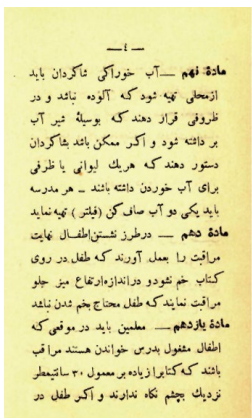 — ٤ —
مادهٔ نهم — آب خوراکی شاگردان باید
از محلی تهیه شود که آلوده نباشد و در
ظروفی قرار دهند که بوسیلهٔ شیر آب
بر داشته شود و اکر ممکن باشد بشاکردان
دستور دهند که هریك لیوانی یا ظرفی
برای آب خوردن داشته باشند — هر مدرسه
باید یکی دو آب صاف کن (فیلتر) تهیه نماید
مادهٔ دهم — در طرز نشستن اطفال نهایت
مراقبت را بعمل آورند که طفل در روی
کتاب خم نشود و در اندازه ارتفاع میز جلو
مراقبت نمایند که طفل محتاج بخم شدن نباشد
مادهٔ یازدهم — معلمین باید در موقعی که
اطفال مشغول بدرس خواندن هستند مراقب
باشند که کتابرا زیاده بر معمول ۳۰ سانتیمطر
نزدیك بچشم نکاه ندارند و اکر طفل در